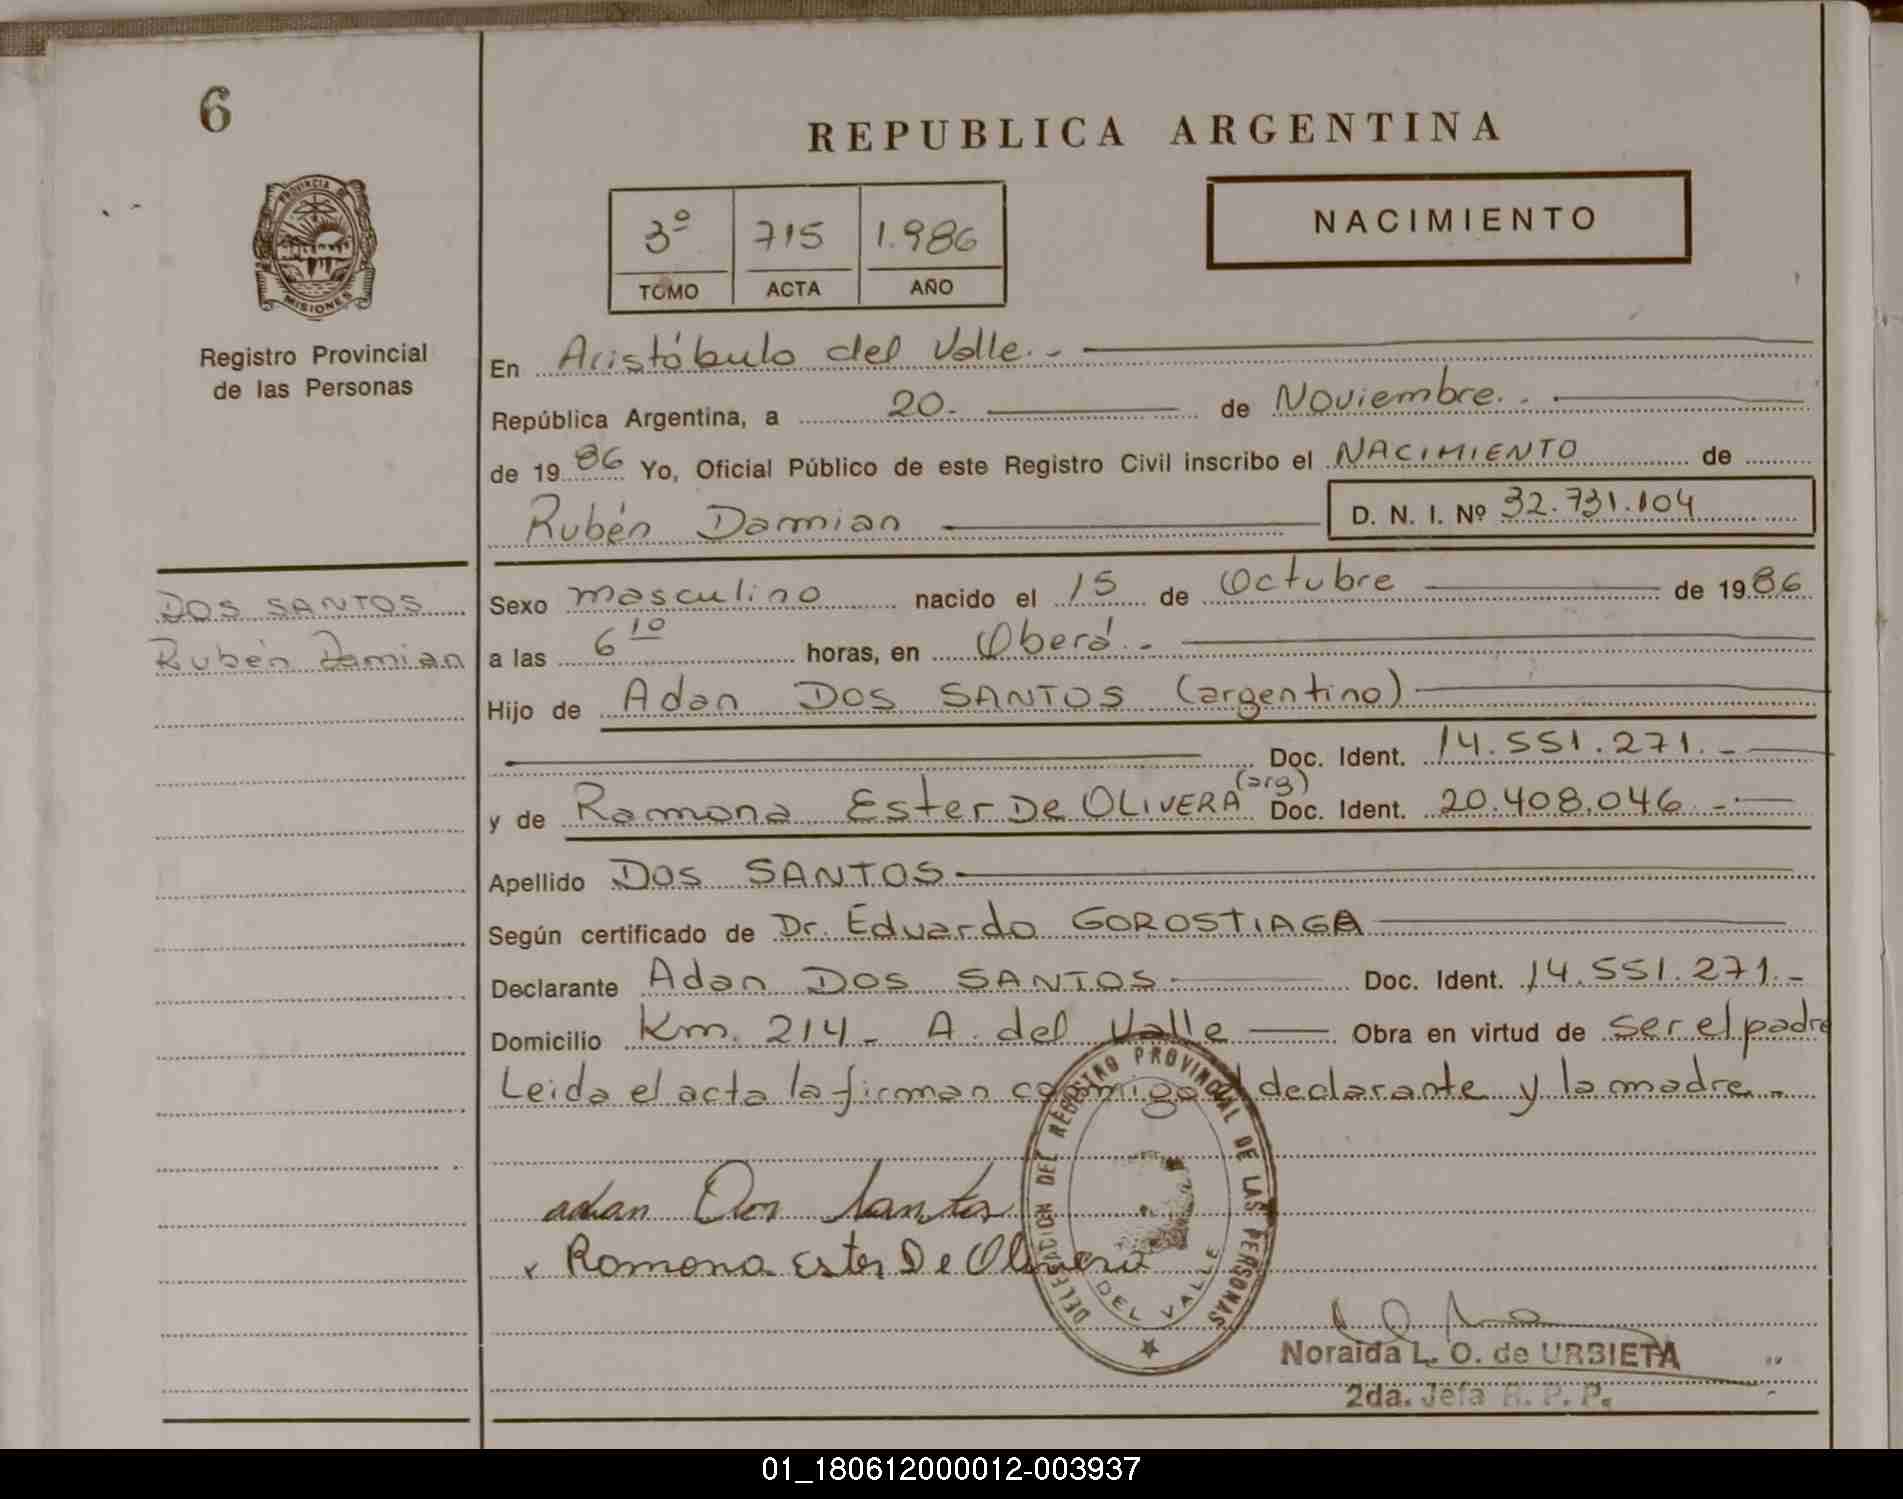 6
PROVINCIA DE
MISIONES
Registro Provincial
de las Personas
REPUBLICA ARGENTINA
3º 715 1.986
TOMO ACTA AÑO
NACIMIENTO
En Aristóbulo del Valle.-
República Argentina, a 20.- de Noviembre.-
de 1986 Yo, Oficial Público de este Registro Civil inscribo el NACIMIENTO de
Rubén Damian D. N. I. Nº 32.731.104
DOS SANTOS
Rubén Damian
Sexo masculino nacido el 15 de Octubre de 1986
a las 6 10 horas, en Oberá.-
Hijo de Adan DOS SANTOS (argentino)
Doc. Ident. 14.551.271.-
y de Ramona Ester De OLIVERA (arg) Doc. Ident. 20.408.046.-
Apellido DOS SANTOS
Según certificado de Dr. Eduardo GOROSTIAGA
Declarante Adan DOS SANTOS Doc. Ident. 14.551.271.-
Domicilio Km. 214 - A. del Valle Obra en virtud de ser el padre
Leida el acta la firman conmigo el declarante y la madre.-
adan Dos Santos
x Ramona Ester De Olivera
DELEGACION DEL REGISTRO PROVINCIAL DE LAS PERSONAS
DEL VALLE
Noraida L. O. de URBIETA
2da. Jefa R. P. P.
01_180612000012-003937